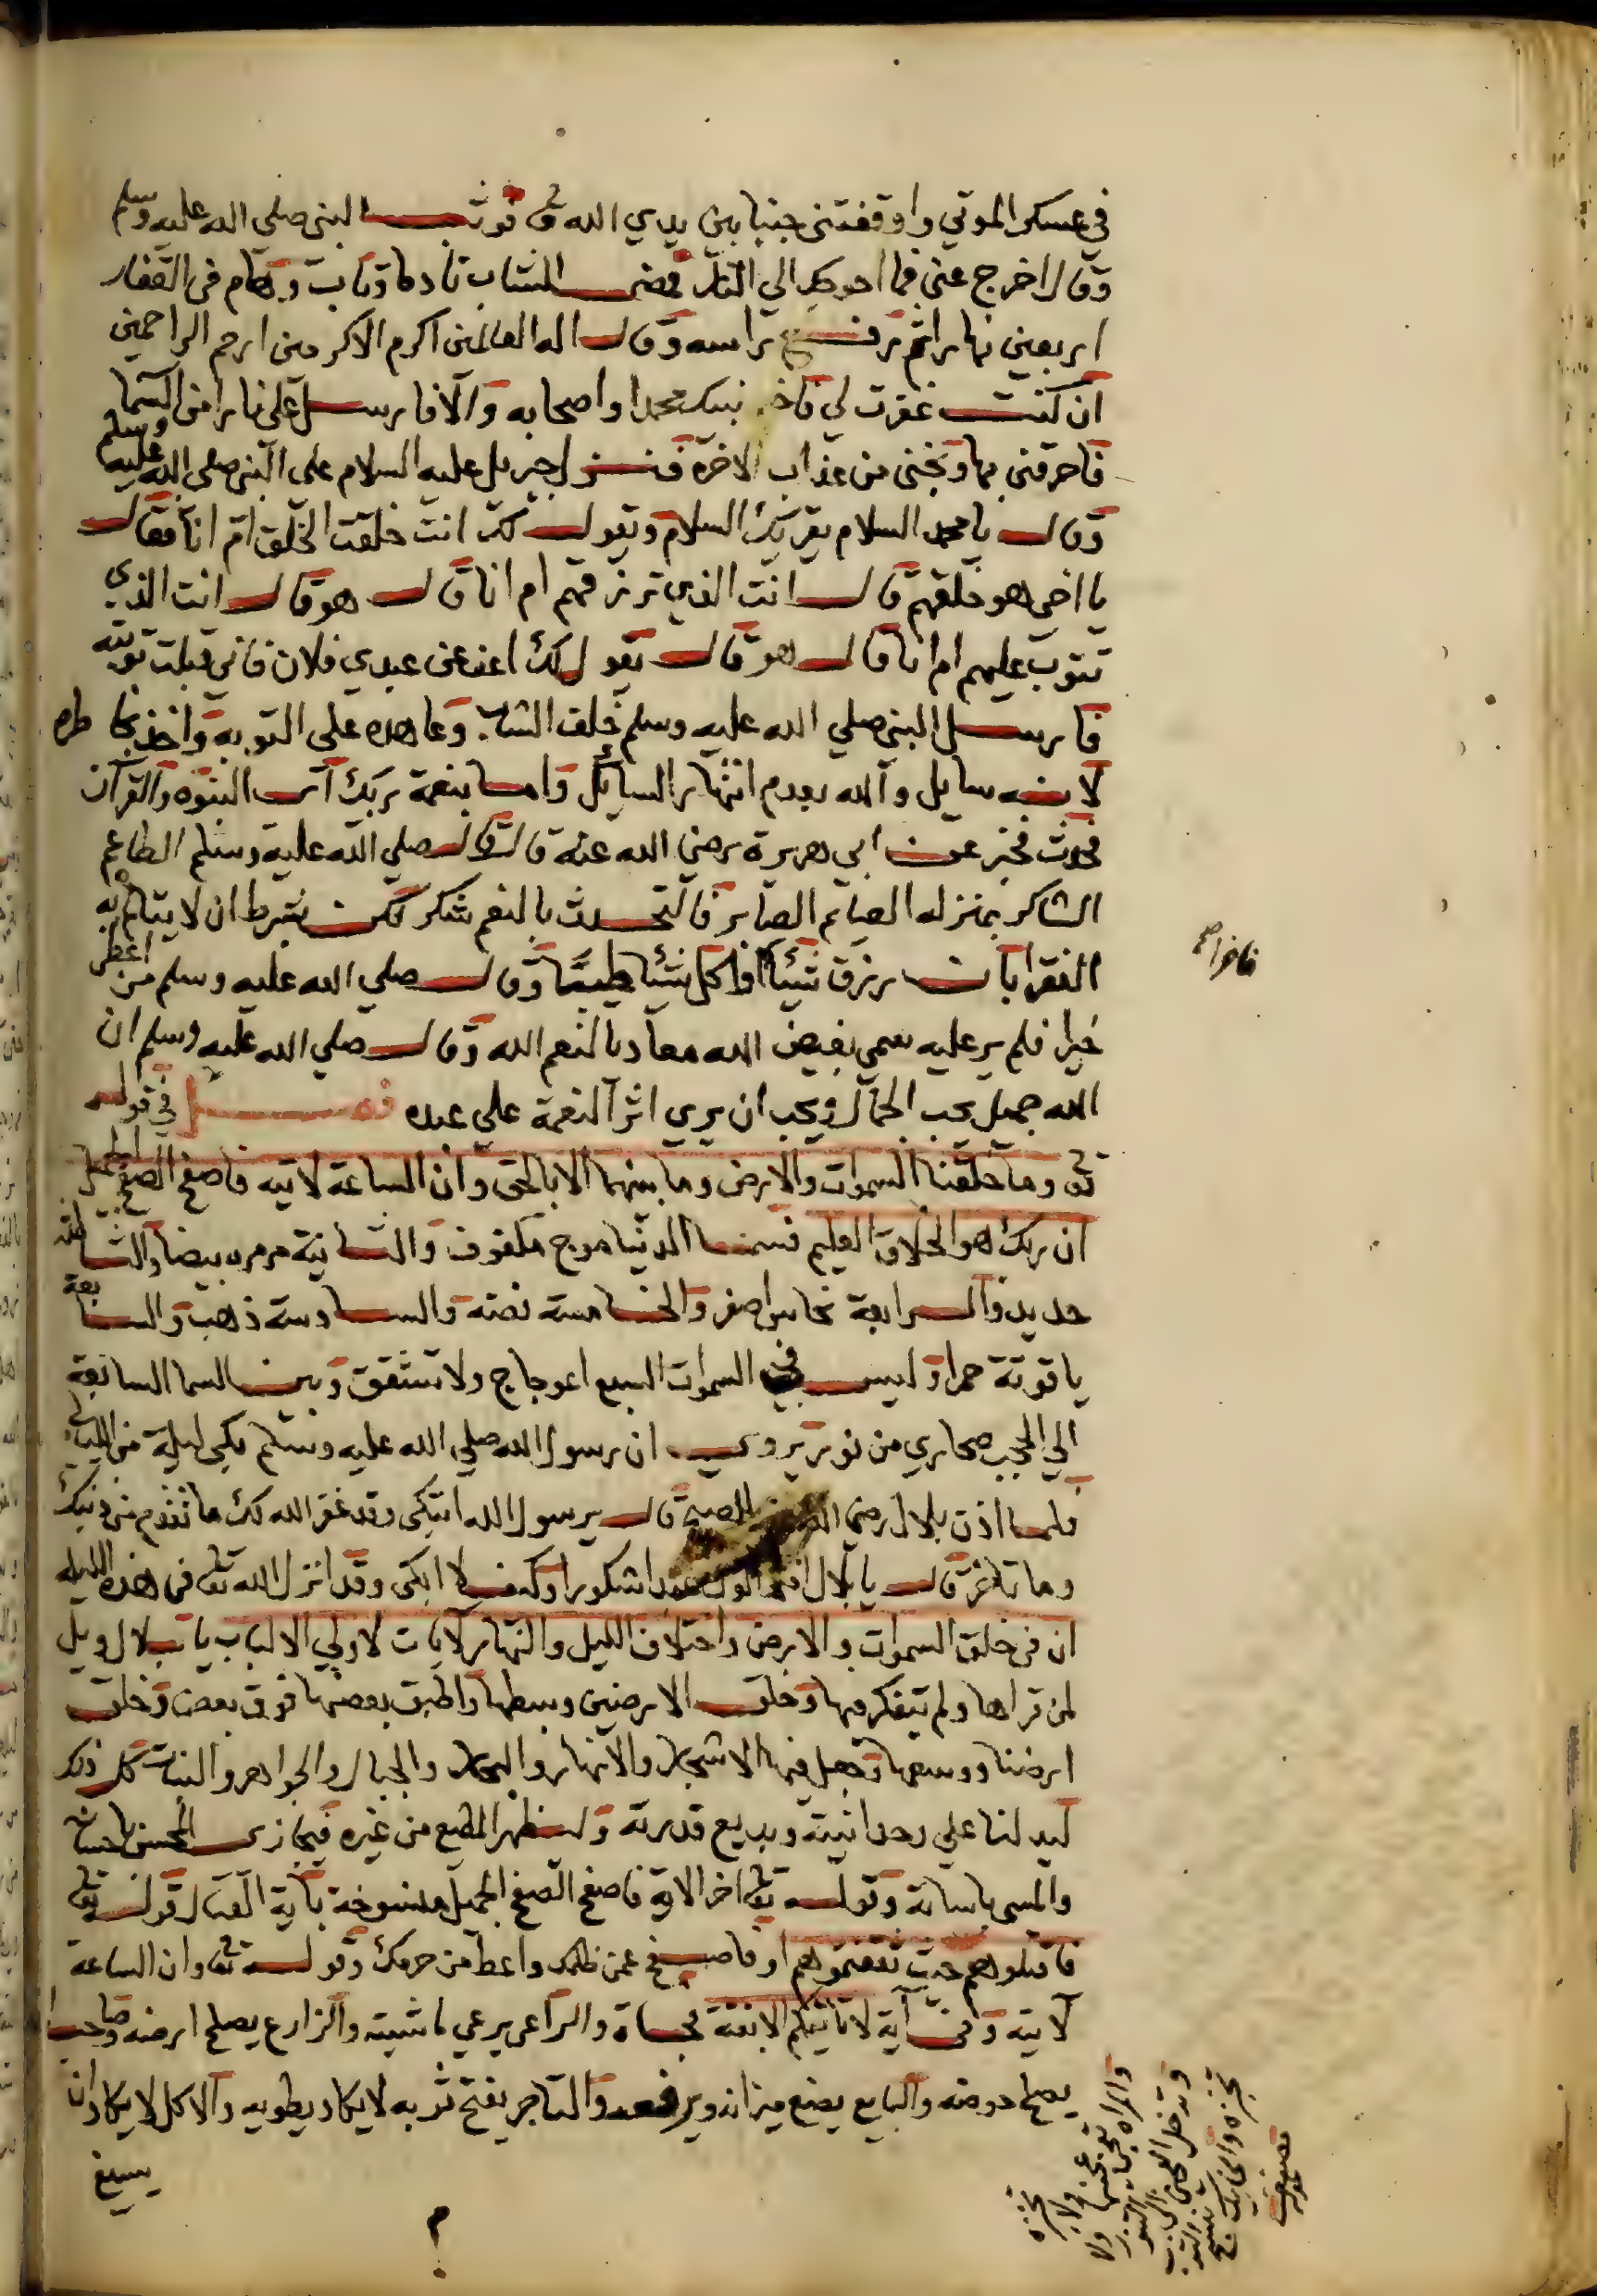 في عسكر الموتي واوقفتني جنبا بين يدي الله تع فوثب النبي صلي الله عليه وسلم
وقال اخرج عني فما احوجك الي النار فمضي الشاب نادما وتاب وهام في القفار
اربعين نهارا ثم رفع راسه وقال اله العالمين اكرم الاكرمين ارحم الراحمين
ان كنت غفرت لي فاخبر نبيك محمدا واصحابه والا فارسل علي نارا من السما
فاحرقني بها ونجني من عذاب الاخرة فنزل جبريل عليه السلام علي النبي صلي الله عليه وسلم
وقال يا محمد السلام يقريك السلام ويقول لك انت خلقت الخلق ام انا فقال
يا اخي هو خلقهم قال انت الذي ترزقهم ام انا قال هو قال انت الذي
تتوب عليهم ام انا قال هو قال يقول لك اعف عن عبدي فلان فاني قبلت توبته
فارسل النبي صلي الله عليه وسلم خلف الشاب وعاهده علي التوبة واخذ بخاطره
لانه سايل والله يعدم انتهار السائل واما بنعمة ربك اي النبوه والقرآن
فحدث فخبر عن ابي هريرة رضي الله عنه قال قال صلي الله عليه وسلم الطاعم
الشاكر بمنزلة الصايم الصابر فالتحدث بالنعم شكر لكن بشرط ان لا يتالم به
الفقرا بان رزق شيئا او اكل شيئا طيبا وقال صلي الله عليه وسلم من اعطي
خيرا فلم ير عليه سمي بغيض الله معاديا لنعم الله وقال صلي الله عليه وسلم ان
الله جميل يحب الجمال ويحب ان يري اثر النعمة علي عبده فصل في قوله
تع وما خلقنا السموات والارض وما بينهما الا بالحق وان الساعة لاتيه فاصفح الصفح الجميل
ان ربك هو الخلاق العليم فسما الدنيا موج مكفوف والثانية مرمره بيضا والثالثة
حديد والرابعة نحاس اصفر والخامسة فضه والسادسة ذهب والسابعة
ياقوتة حمرا وليس في السموات السبع اعوجاج ولا تشقق وبين السما السابعة
الي الحجب صحاري من نور يروي ان رسول الله صلي الله عليه وسلم بكي ليلة من الليالي
فلما اذن بلال رضي الله عنه للصبح قال يرسول الله اتبكي وقد غفر الله لك ما تقدم من ذنبك
وما تاخر قال يا بلال افلا اكون عبدا شكورا وكيف لا ابكي وقد انزل الله تع في هذه الليلة
ان في خلق السموات والارض واختلاف الليل والنهار لآيات لاولي الالباب يا بلال ويل
لمن قراها ولم يتفكر فيها وخلق الارضين وبسطها واطبق بعضها فوق بعض وخلق
ارضنا ووسعها وجعل فيها الاشجار والانهار والبحار والجبال والجواهر والنبات كل ذلك
ليدلنا علي وحدانيته وبديع قدرته وليظهر المطيع من غيره فيجازي المحسن باحسانه
والمسي باساته وقوله تعالي اخر الاية فاصفح الصفح الجميل منسوخة باية القتال قوله تعالي
فاقتلوهم حيث ثقفتموهم او فاصفح عمن ظلمك واعط من حرمك وقوله تع وان الساعة
لآتيه وفي آية لا تاتيكم الا بغتة فجاة والراعي يرعي ماشيته والزارع يصلح ارضه وصاحب
يصلح حوضه والبايع يضع ميزانه ويرفعه والتاجر يفتح ثوبه لا يكاد يطويه والاكل لا يكاد ان
يسيغ